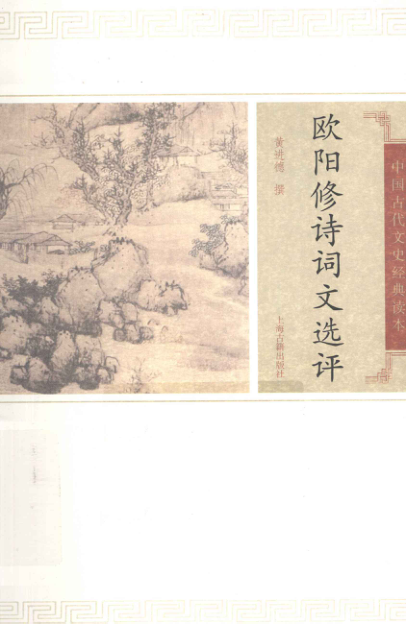 中国古代文史经典读本
欧阳修诗词文选评
黄进德 撰
上海古籍出版社